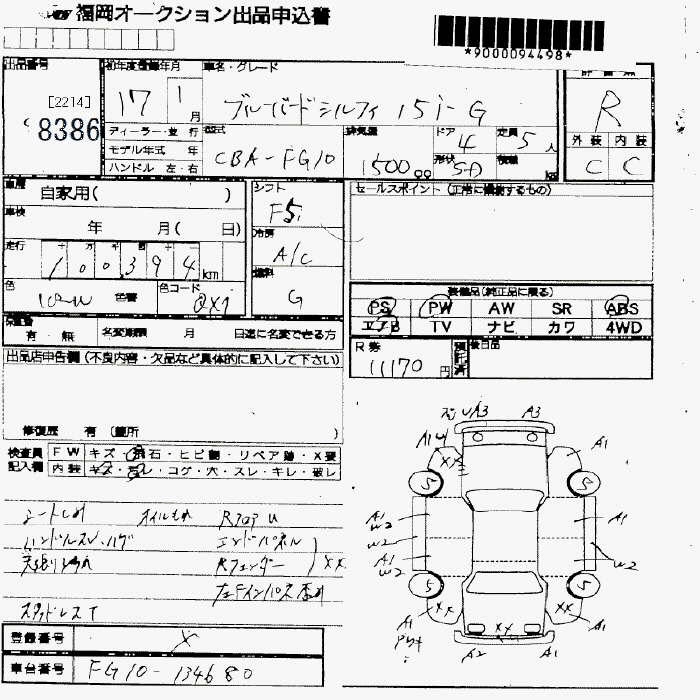 福岡オークション出品申込書
*9000094498*
出品番号
[2214]
8386
初年度登録年月
17 1月
車名・グレード
ブルーバードシルフィ 15i-G
R
外装 内装
C C
ディーラー・並行
モデル年式 年
ハンドル 左・右
型式
CBA-FG10
排気量
1500 cc
ドア
4
形状
SD
定員
5人
積載
kg
車歴
自家用( )
車検
年 月( 日)
走行
100,394 km
色
色替
色コード
シフト
F5
冷房
A/C
燃料
G
セールスポイント (正常に機能するもの)
装備品(純正品に限る)
PS PW AW SR ABS
エアB TV ナビ カワ 4WD
保証書
有 無
名変期限 月 日迄に名変できる方
R券
11170円
預託済
後日品
出品店申告欄 (不良内容・欠品など具体的に記入して下さい)
修復歴 有 (箇所 )
検査員記入欄
FW キズ・飛石・ヒビ割・リペア跡・X要
内装 キズ・汚レ・コゲ・穴・スレ・キレ・破レ
オイルもれ
RフロアU
エンドパネル
Rフェンダー
XX
スタッドレスT
A3 A3
A1 A1
XX
5 5
A1 W2
A1
W2
A1 W2
W2
5 5
XX XX
A1 A1
XX
A2 A1
登録番号
X
車台番号
FG10-134680